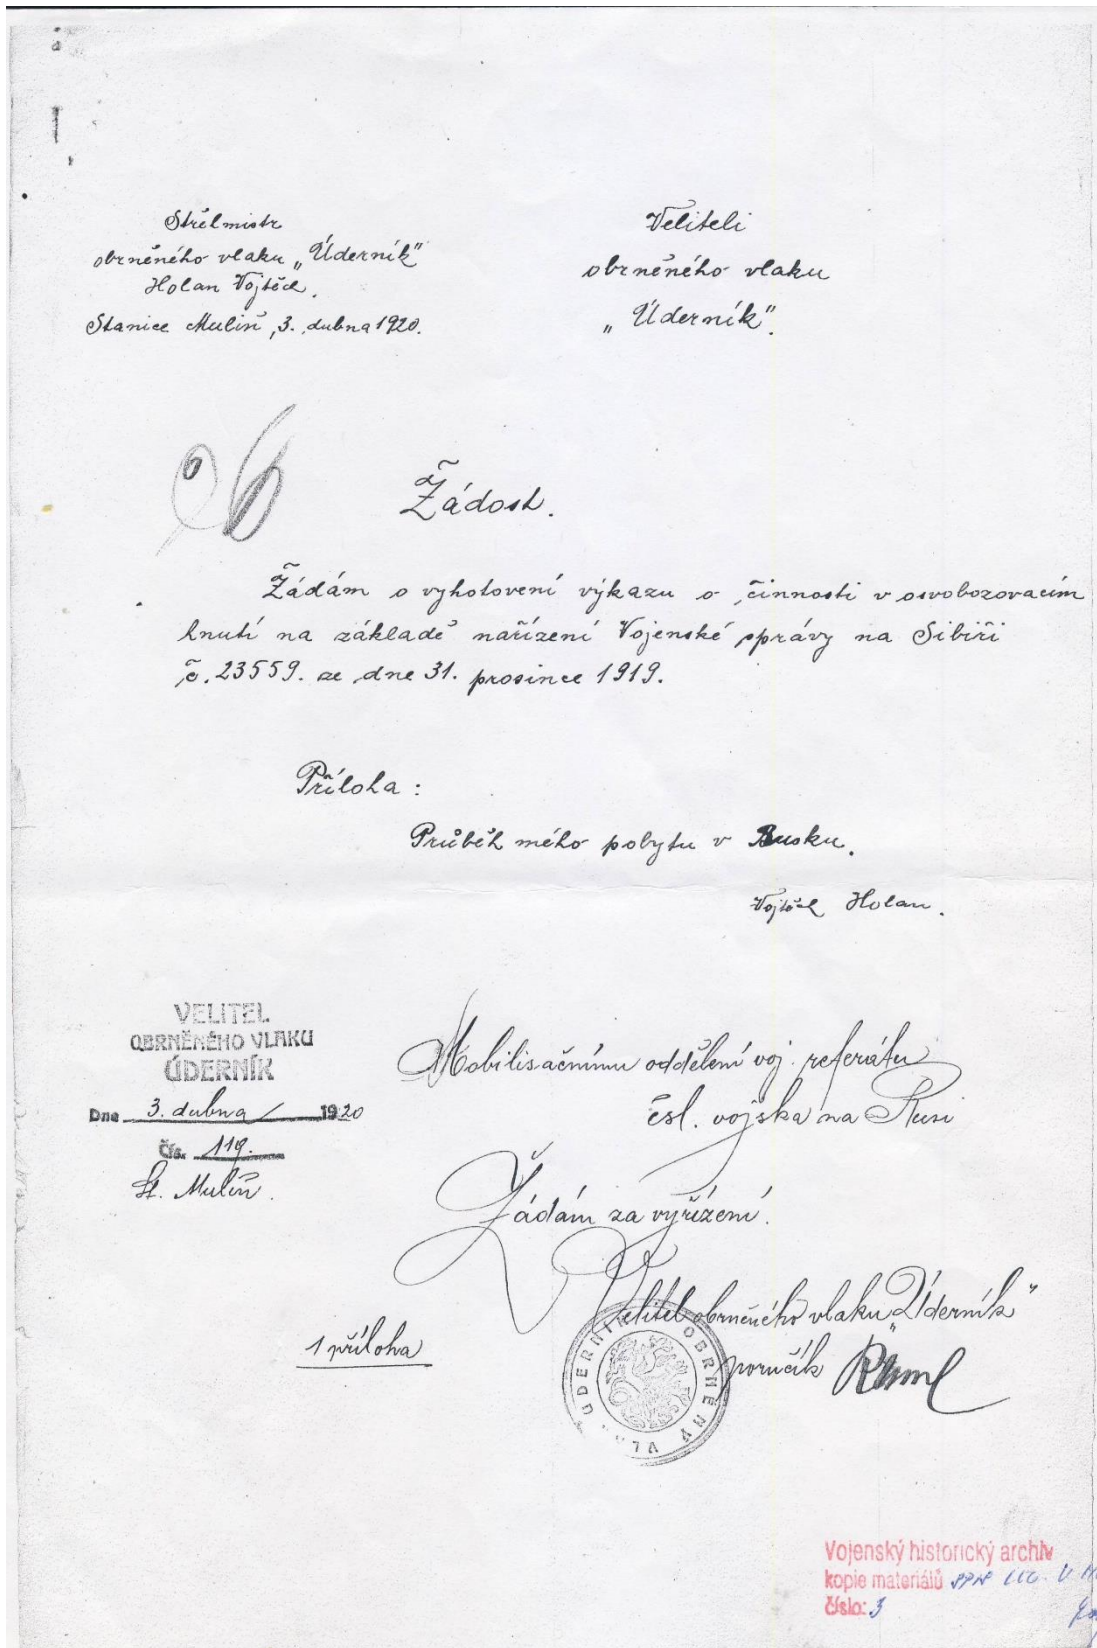 Střelmistr
obrněného vlaku „Úderník"
Holan Vojtěch.
Stanice Mulin, 3. dubna 1920.
Veliteli
obrněného vlaku
„Úderník".
Žádost.
Žádám o vyhotovení výkazu o činnosti v osvobozovacím
hnutí na základě nařízení Vojenské správy na Sibiři
č. 23559. ze dne 31. prosince 1919.
Příloha :
Průběh mého pobytu v Rusku.
Vojtěch Holan.
VELITEL
OBRNĚNÉHO VLAKU
ÚDERNÍK
Dne 3. dubna 1920
Čís. 119.
St. Mulin.
Mobilisačnímu oddělení voj. referátu
čsl. vojska na Rusi
Žádám za vyřízení.
Velitel obrněného vlaku „Úderník"
poručík
1 příloha
ÚDERNÍK OBRNĚNÝ VLAK
Vojenský historický archiv
kopie materiálů
číslo: 3